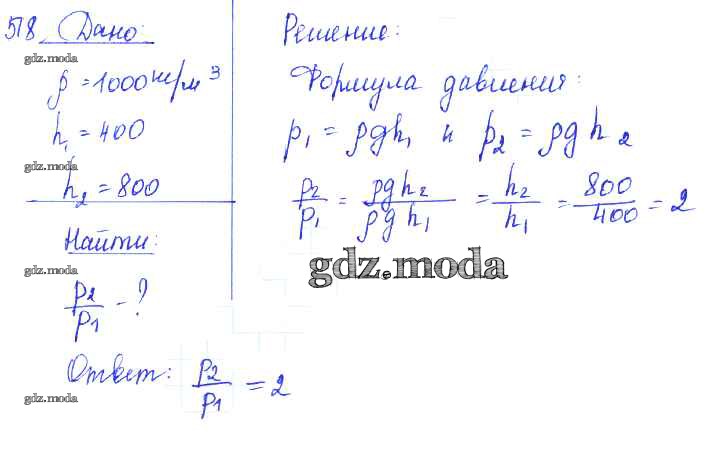 518 Дано:
gdz.moda
ρ = 1000 кг/м³
h₁ = 400
gdz.moda
h₂ = 800
Найти:
p₂/p₁ - ?
Ответ: p₂/p₁ = 2
gdz.moda
Решение:
Формула давления:
p₁ = ρgh₁ и p₂ = ρgh₂
p₂/p₁ = ρgh₂/ρgh₁ = h₂/h₁ = 800/400 = 2
gdz.moda